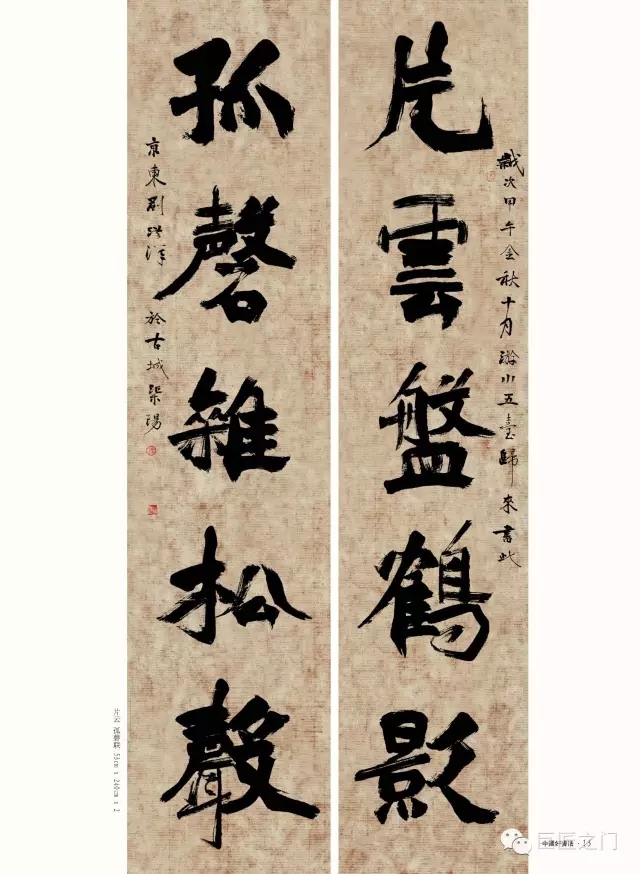 片雲盤鶴影
孤磬雜松聲
歲次甲午金秋十月游小五臺歸來書此
京東劉洪洋
於古城漁陽
片云 孤磬联 53cm x 240cm x 2
中國好書法·15
巨匠之门